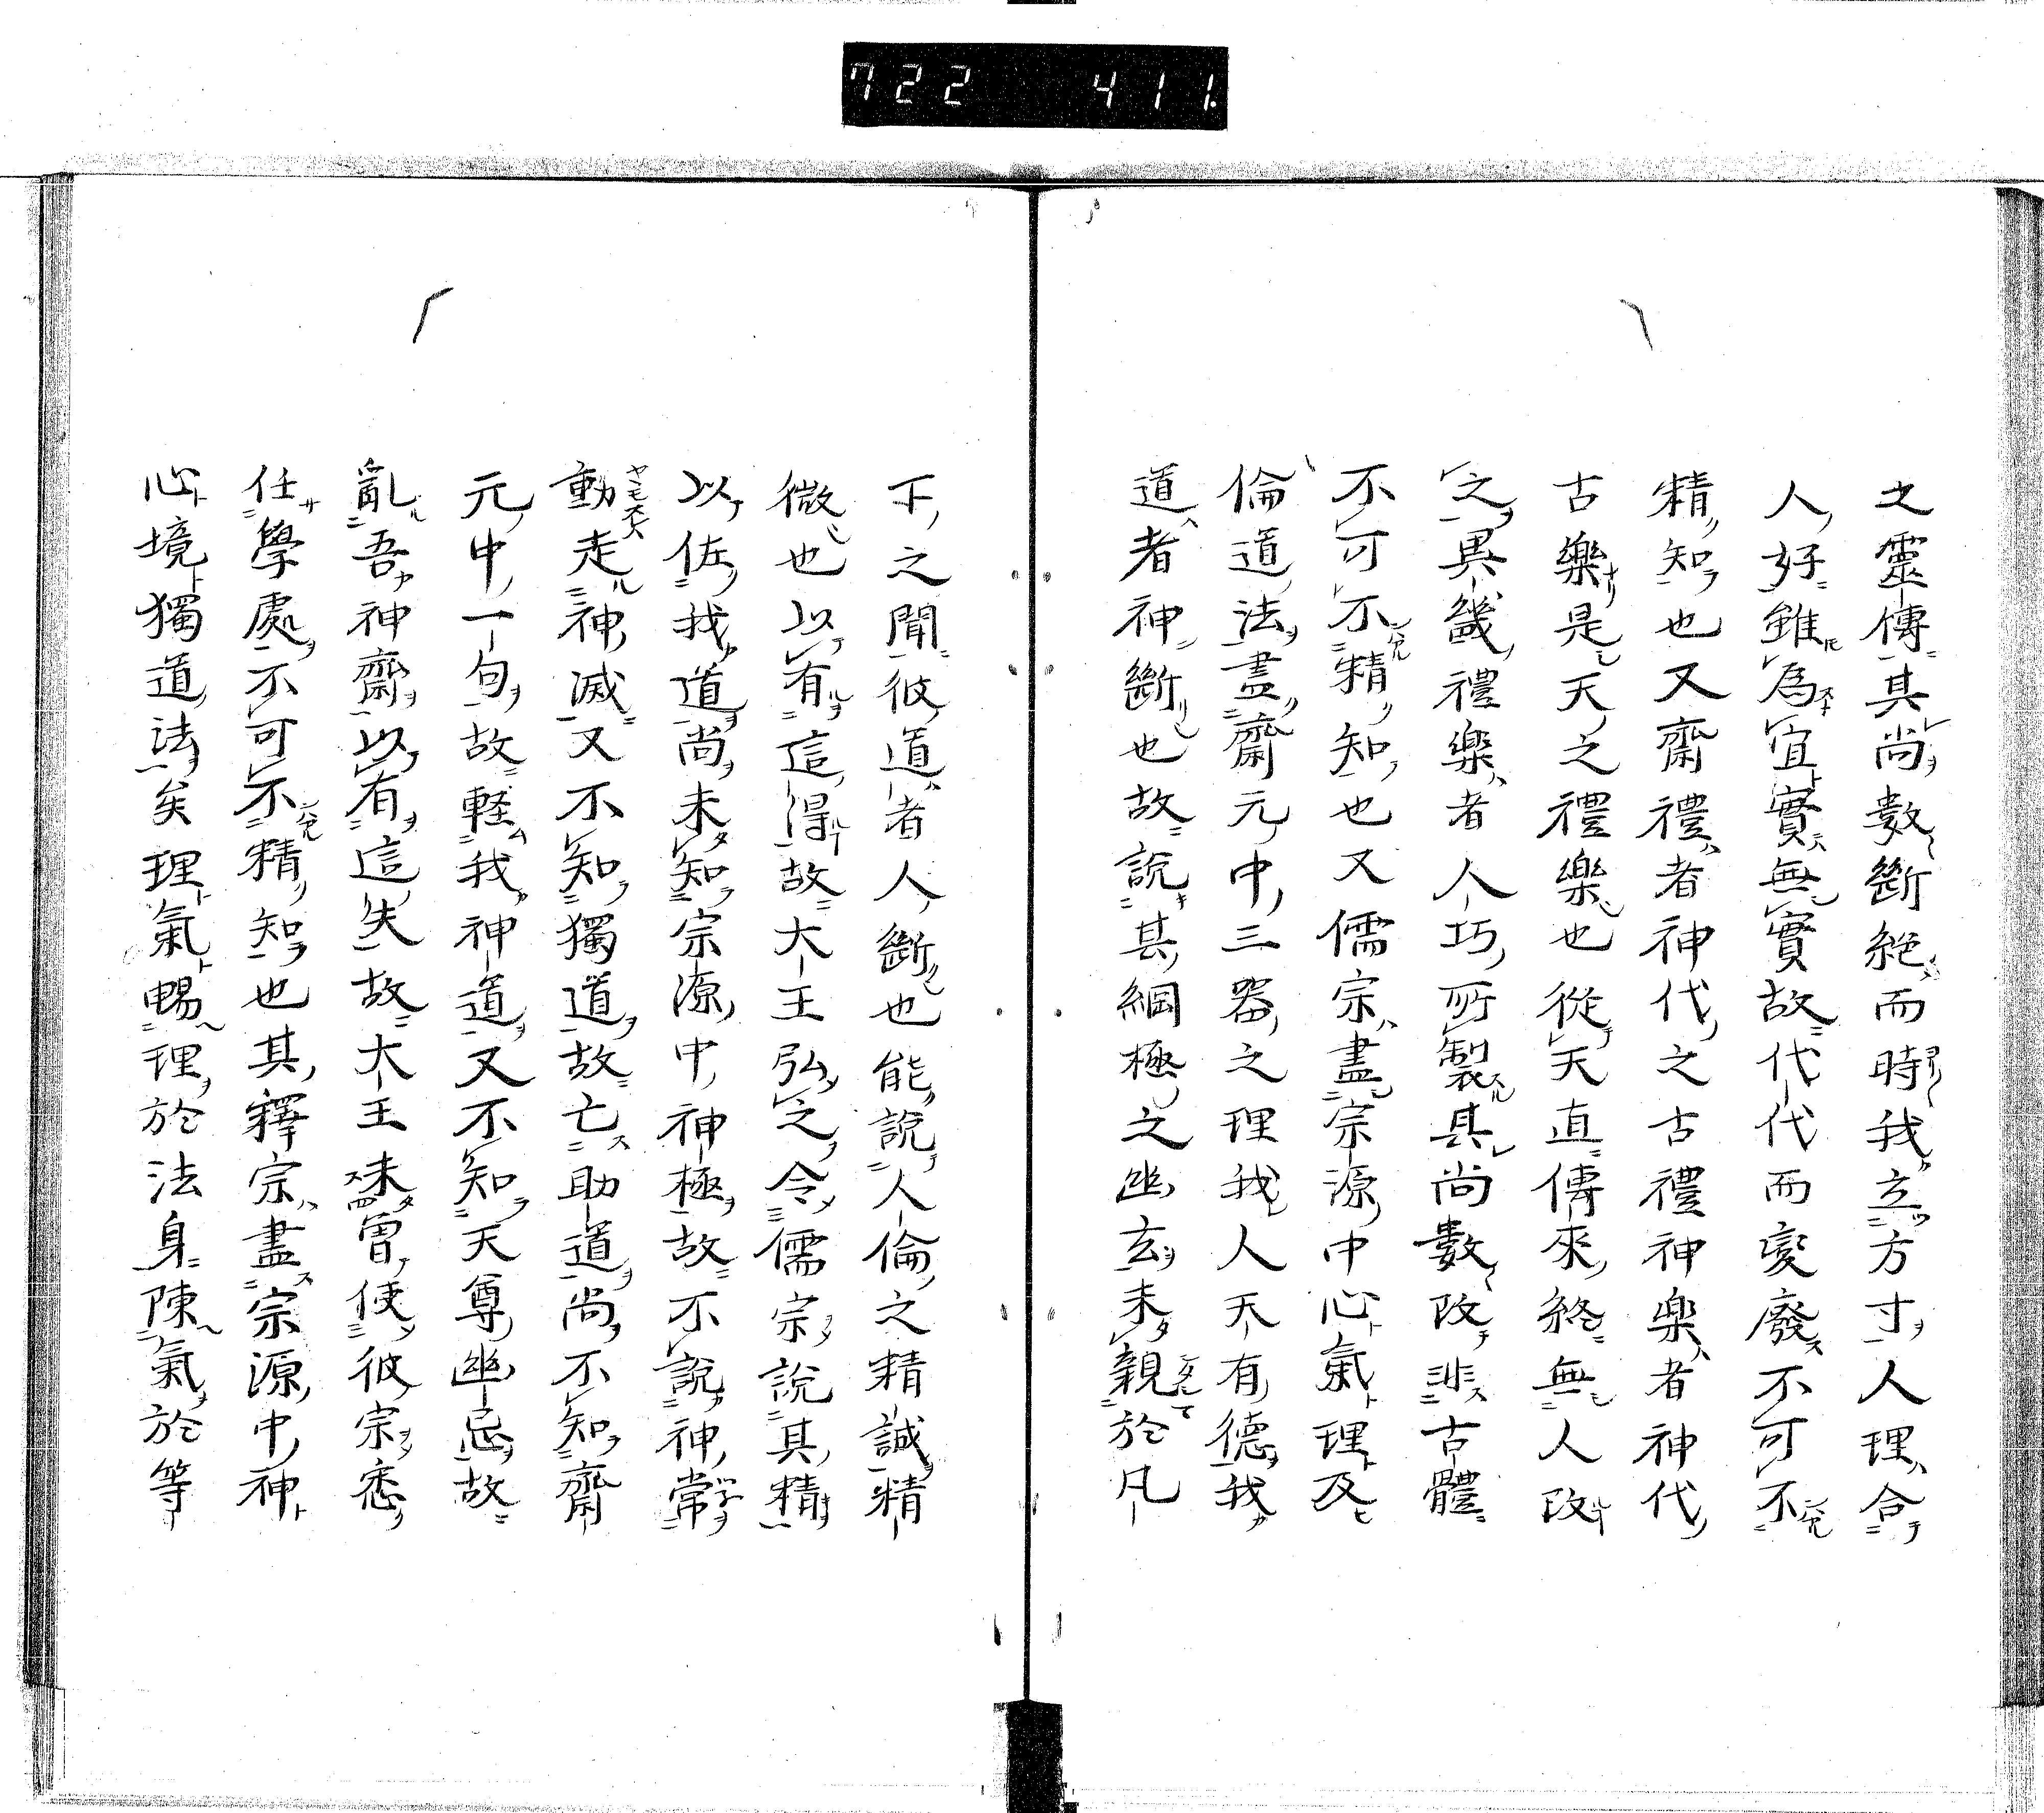 722 411.
之靈傳其尚數斷絕而時我立方寸人理合
人好雖為宜實無實故代代而変廢不可不
精知也又齋禮者神代之古禮神楽者神代
古樂是天之禮樂也從天直傳來終無人改
之異幾禮樂者人巧所製其尚數改非古體
不可不精知也又儒宗盡宗源中心氣理及
倫道法盡齋元中三器之理我人天有德我
道者神斷也故說其綱極之幽玄未親於凡
下之聞彼道者人斷也能說人倫之精誠精
微也以有這得故大王弘之令儒宗說其精
以佐我道尚未知宗源中神極故不說神常
動走神滅又不知獨道故亡助道尚不知齋
元中一句故軽我神道又不知天尊幽忌故
亂吾神齋以有這失故大王未曾使彼宗悉
任學處不可不精知也其釋宗盡宗源中神
心境獨道法矣理氣暢理於法身陳氣於等